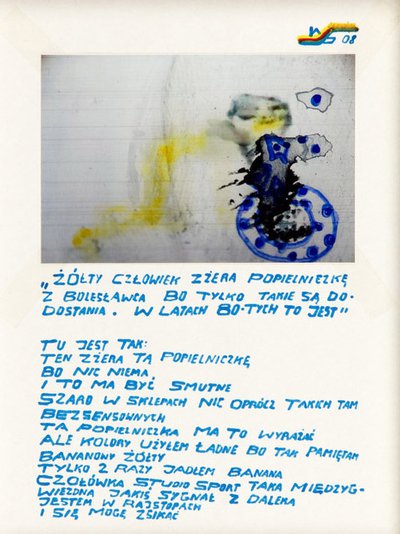 WD 08
„ŻÓŁTY CZŁOWIEK ZŻERA POPIELNICZKĘ
Z BOLESŁAWCA BO TYLKO TAKIE SĄ DO-
DOSTANIA. W LATACH 80-TYCH TO JEST"
TU JEST TAK:
TEN ZŻERA TĄ POPIELNICZKĘ
BO NIC NIEMA,
I TO MA BYĆ SMUTNE
SZARO W SKLEPACH NIC OPRÓCZ TAKICH TAM
BEZSENSOWNYCH
TA POPIELNICZKA MA TO WYRAŻAĆ
ALE KOLORY UŻYŁEM ŁADNE BO TAK PAMIĘTAM
BANANOWY ŻÓŁTY
TYLKO 2 RAZY JADŁEM BANANA
CZOŁÓWKA STUDIO SPORT TAKA MIĘDZYG-
WIEZDNA JAKIŚ SYGNAŁ Z DALEKA
JESTEM W RAJSTOPACH
I SIĘ MOGĘ ZSIKAĆ